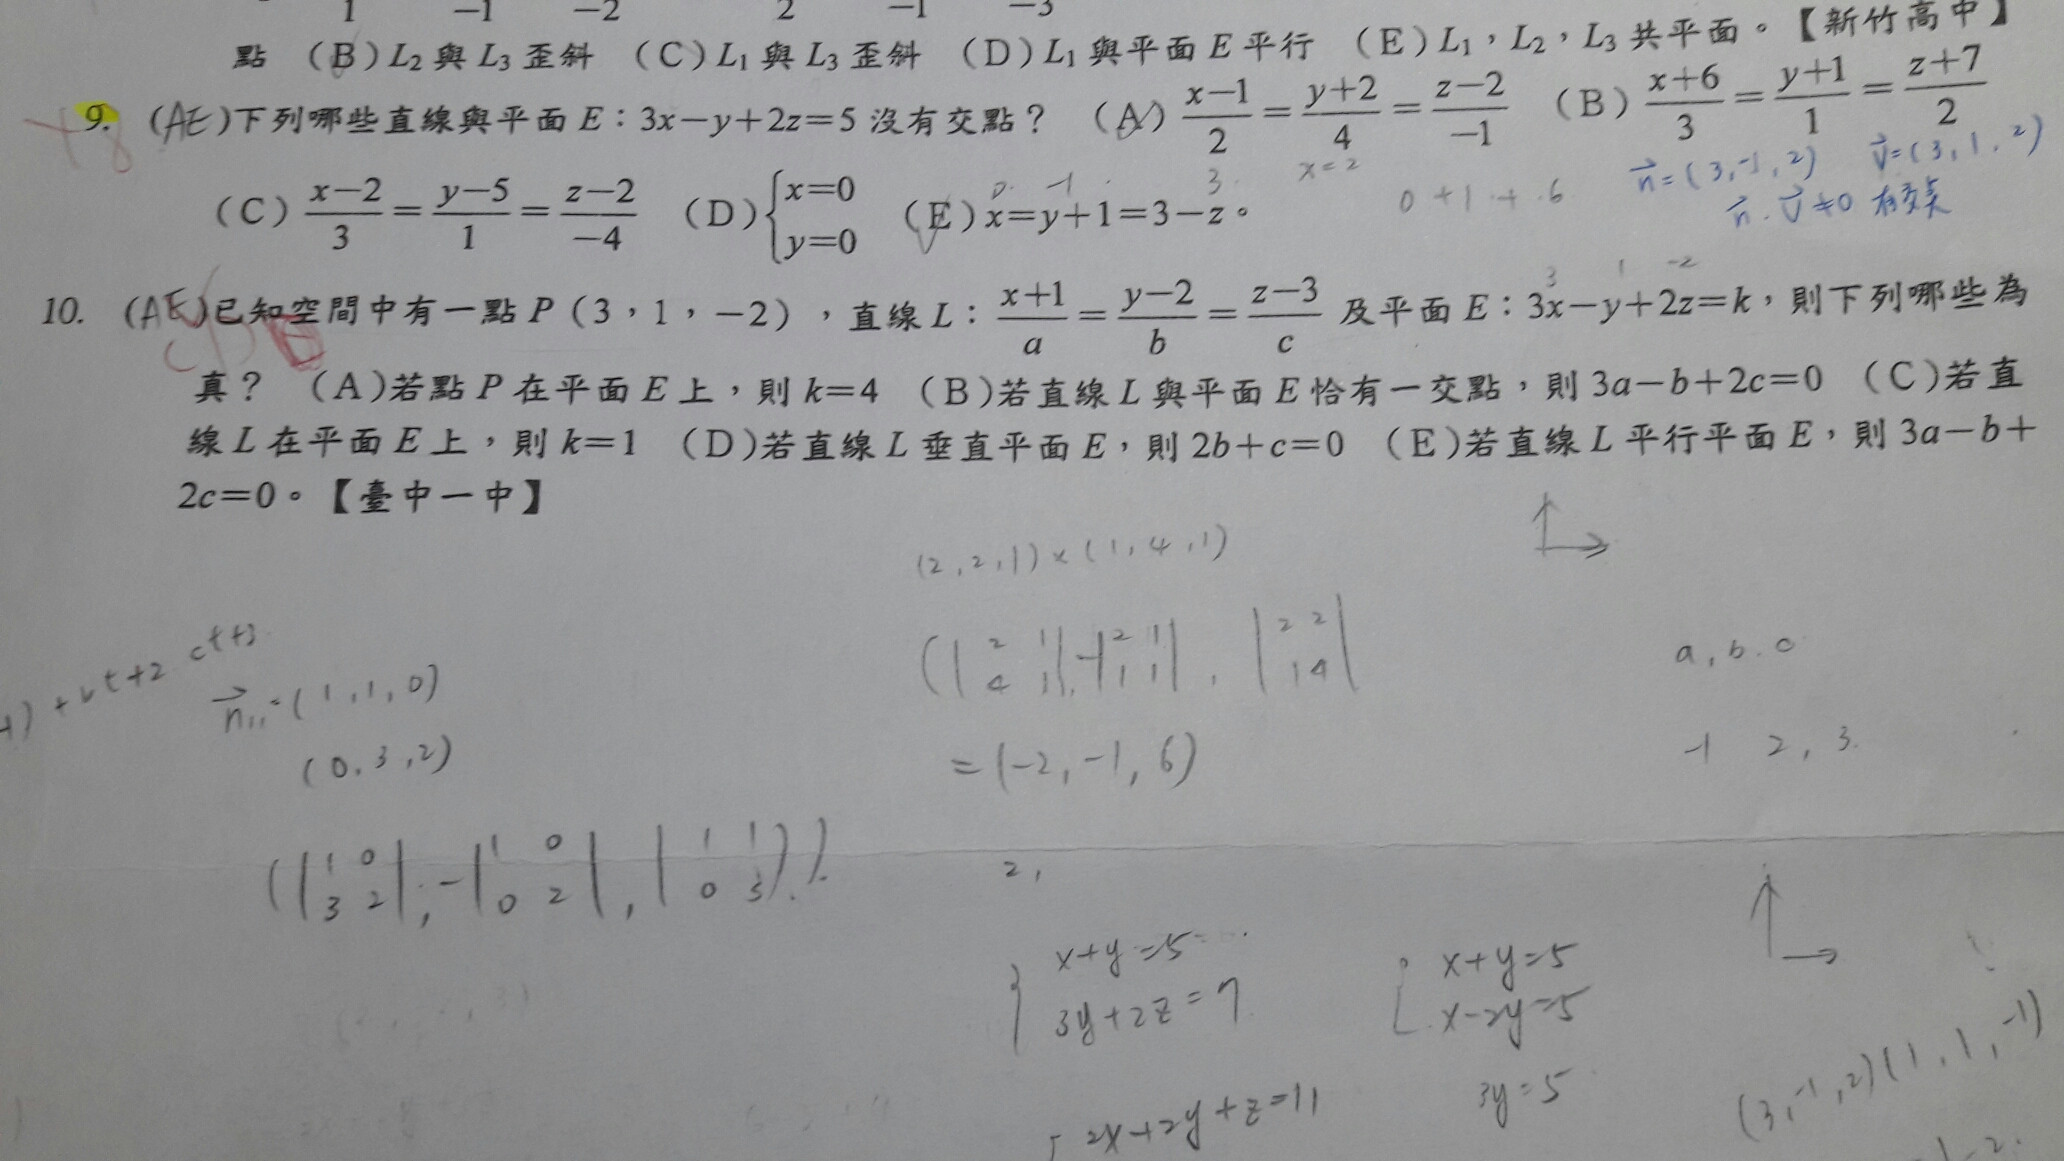 1 -1 -2 2 -1 -3
點 (B)L₂與L₃歪斜 (C)L₁與L₃歪斜 (D)L₁與平面E平行 (E)L₁,L₂,L₃共平面。【新竹高中】
9. (AE)下列哪些直線與平面E:3x-y+2z=5沒有交點? (A) (x-1)/2=(y+2)/4=(z-2)/-1 (B) (x+6)/3=(y+1)/1=(z+7)/2
x=2 0+1+6 n=(3,-1,2) v=(3,1,2)
n·v≠0 有交點
(C) (x-2)/3=(y-5)/1=(z-2)/-4 (D){x=0 y=0 (E)x=y+1=3-z。
0 -1 3
3 1 -2
10. (AE)已知空間中有一點P(3,1,-2),直線L:(x+1)/a=(y-2)/b=(z-3)/c及平面E:3x-y+2z=k,則下列哪些為
真? (A)若點P在平面E上,則k=4 (B)若直線L與平面E恰有一交點,則3a-b+2c=0 (C)若直
線L在平面E上,則k=1 (D)若直線L垂直平面E,則2b+c=0 (E)若直線L平行平面E,則3a-b+
2c=0。【臺中一中】
(2,2,1)×(1,4,1)
(|2 1|,-|2 1|,|2 2|
4 1 1 1 1 4
=(-2,-1,6)
a,b,c
-1 2,3
bt+2 ct+3
n=(1,1,0)
(0,3,2)
(|1 0|,-|1 0|,|1 1|)
3 2 0 2 0 3
2,
x+y=5
3y+2z=7
2x+2y+z=11
x+y=5
x-2y=5
3y=5
(3,-1,2)(1,1,-1)